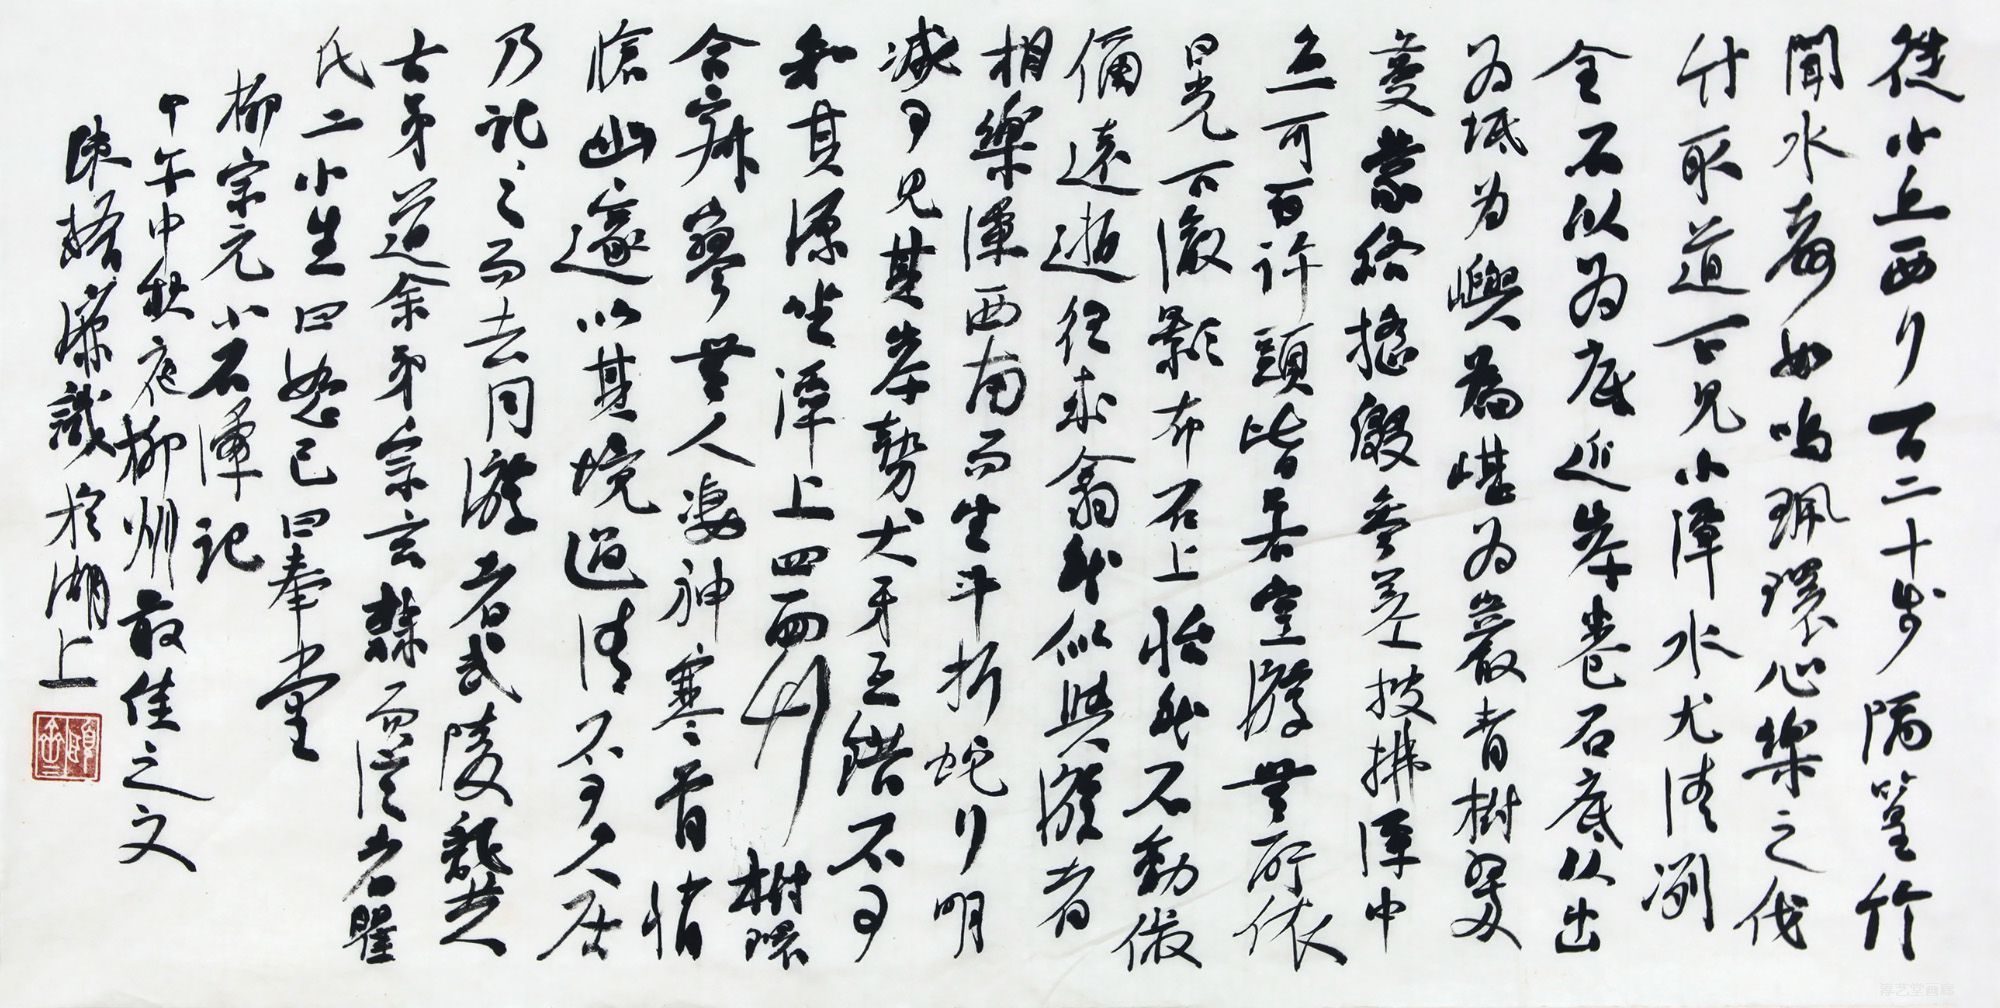 從小丘西行百二十步隔篁竹
聞水聲如鳴珮環心樂之伐
竹取道下見小潭水尤清冽
全石以為底近岸卷石底以出
為坻為嶼為嵁為巖青樹翠
蔓蒙絡搖綴參差披拂潭中
魚可百許頭皆若空游無所依
日光下澈影布石上怡然不動俶
爾遠逝往來翕然似與游者
相樂潭西南而望斗折蛇行明
滅可見其岸勢犬牙互錯不可
知其源坐潭上四面竹樹環
合寂寥無人凄神寒骨悄
愴幽邃以其境過清不可久居
乃記之而去同游者武陵龔
古弟道余弟宗玄隸而從者崔
氏二小生曰恕己曰奉壹
柳宗元小石潭記
甲午中秋夜柳州最佳之文
陳振濂識於湖上
淳艺堂画廊